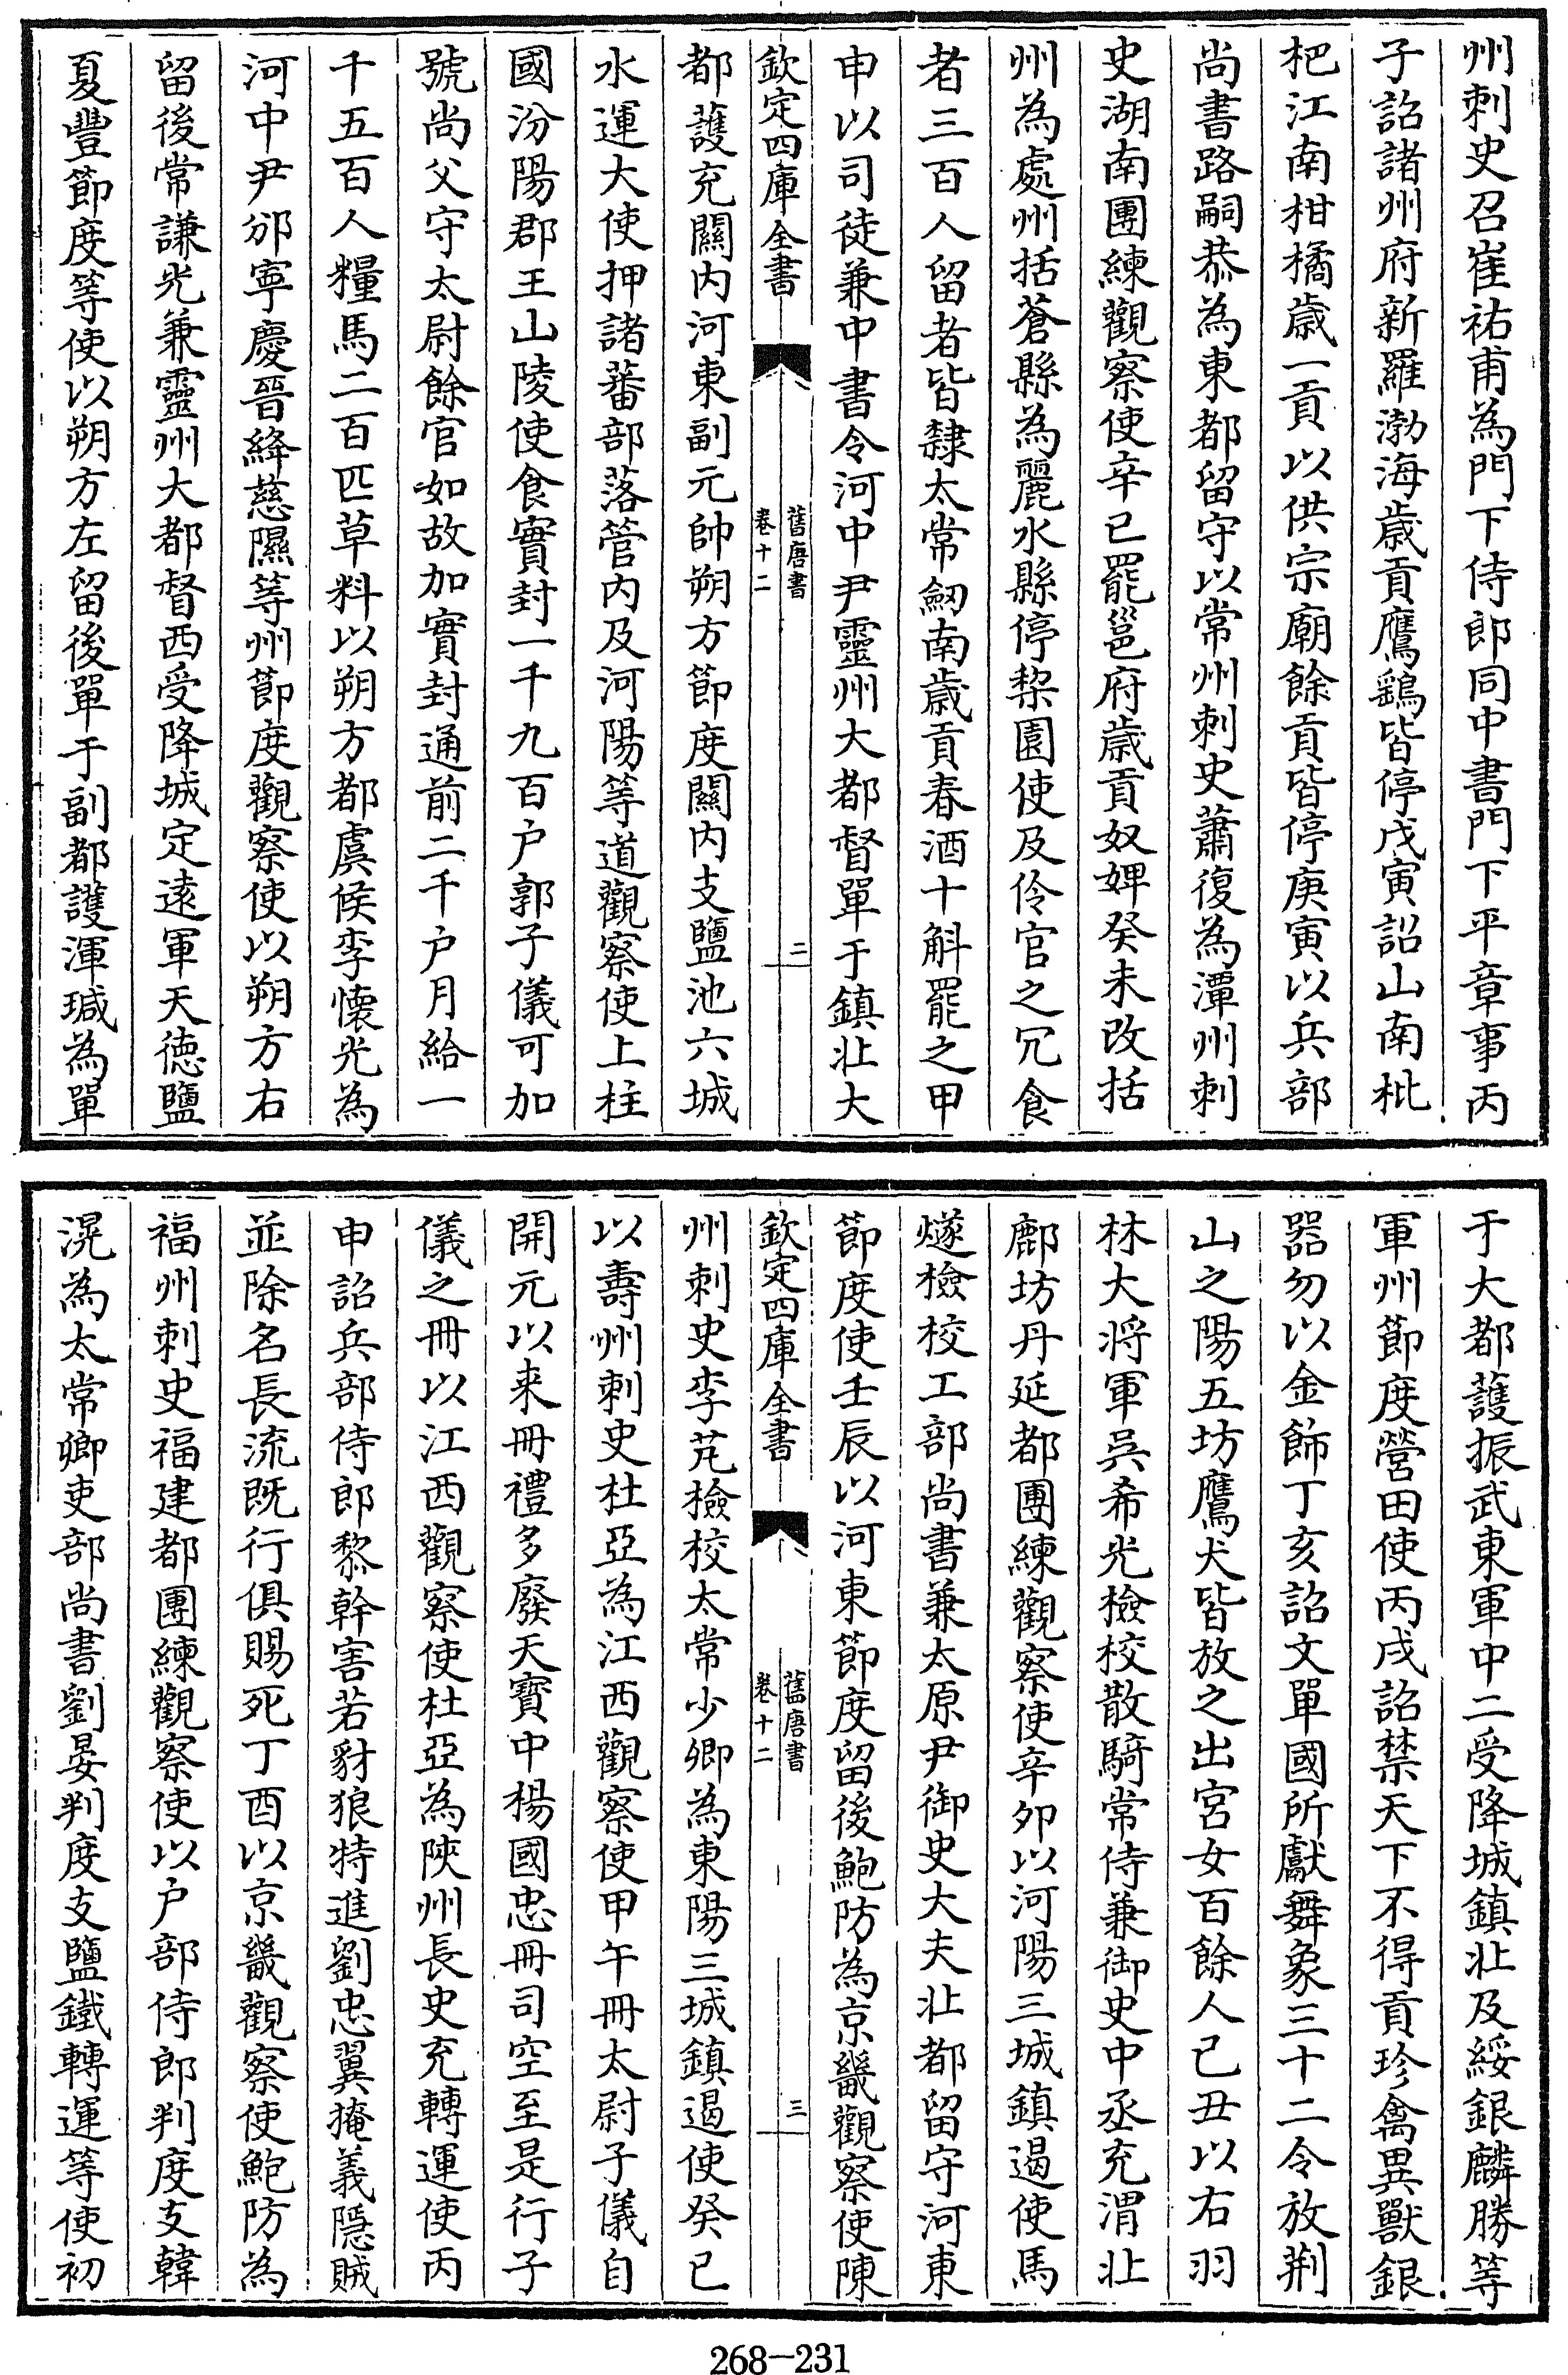 州刺史召崔祐甫為門下侍郎同中書門下平章事丙
子詔諸州府新羅渤海歲貢鷹鷂皆停戊寅詔山南枇
杷江南柑橘歲一貢以供宗廟餘貢皆停庚寅以兵部
尚書路嗣恭為東都留守以常州刺史蕭復為潭州刺
史湖南團練觀察使辛已罷邕府歲貢奴婢癸未改括
州為處州括蒼縣為麗水縣停棃園使及伶官之冗食
者三百人留者皆隸太常劒南歲貢春酒十斛罷之甲
申以司徒兼中書令河中尹靈州大都督單于鎮北大
欽定四庫全書
舊唐書
卷十二
二
都護充關内河東副元帥朔方節度關内支鹽池六城
水運大使押諸蕃部落管内及河陽等道觀察使上柱
國汾陽郡王山陵使食實封一千九百户郭子儀可加
號尚父守太尉餘官如故加實封通前二千户月給一
千五百人糧馬二百匹草料以朔方都虞候李懷光為
河中尹邠寧慶晉絳慈隰等州節度觀察使以朔方右
留後常謙光兼靈州大都督西受降城定逺軍天德鹽
夏豐節度等使以朔方左留後單于副都護渾瑊為單
于大都護振武東軍中二受降城鎮北及綏銀麟勝等
軍州節度營田使丙戌詔禁天下不得貢珍禽異獸銀
器勿以金飾丁亥詔文單國所獻舞象三十二令放荆
山之陽五坊鷹犬皆放之出宫女百餘人已丑以右羽
林大將軍吳希光檢校散騎常侍兼御史中丞充渭北
鄜坊丹延都團練觀察使辛卯以河陽三城鎮遏使馬
燧檢校工部尚書兼太原尹御史大夫北都留守河東
節度使壬辰以河東節度留後鮑防為京畿觀察使陳
欽定四庫全書
舊唐書
卷十二
三
州刺史李芃檢校太常少卿為東陽三城鎮遏使癸已
以壽州刺史杜亞為江西觀察使甲午冊太尉子儀自
開元以来冊禮多廢天寶中楊國忠冊司空至是行子
儀之冊以江西觀察使杜亞為陜州長史充轉運使丙
申詔兵部侍郎黎幹害若豺狼特進劉忠翼掩義隱賊
並除名長流既行俱賜死丁酉以京畿觀察使鮑防為
福州刺史福建都團練觀察使以户部侍郎判度支韓
滉為太常卿吏部尚書劉晏判度支鹽鐵轉運等使初
268-231